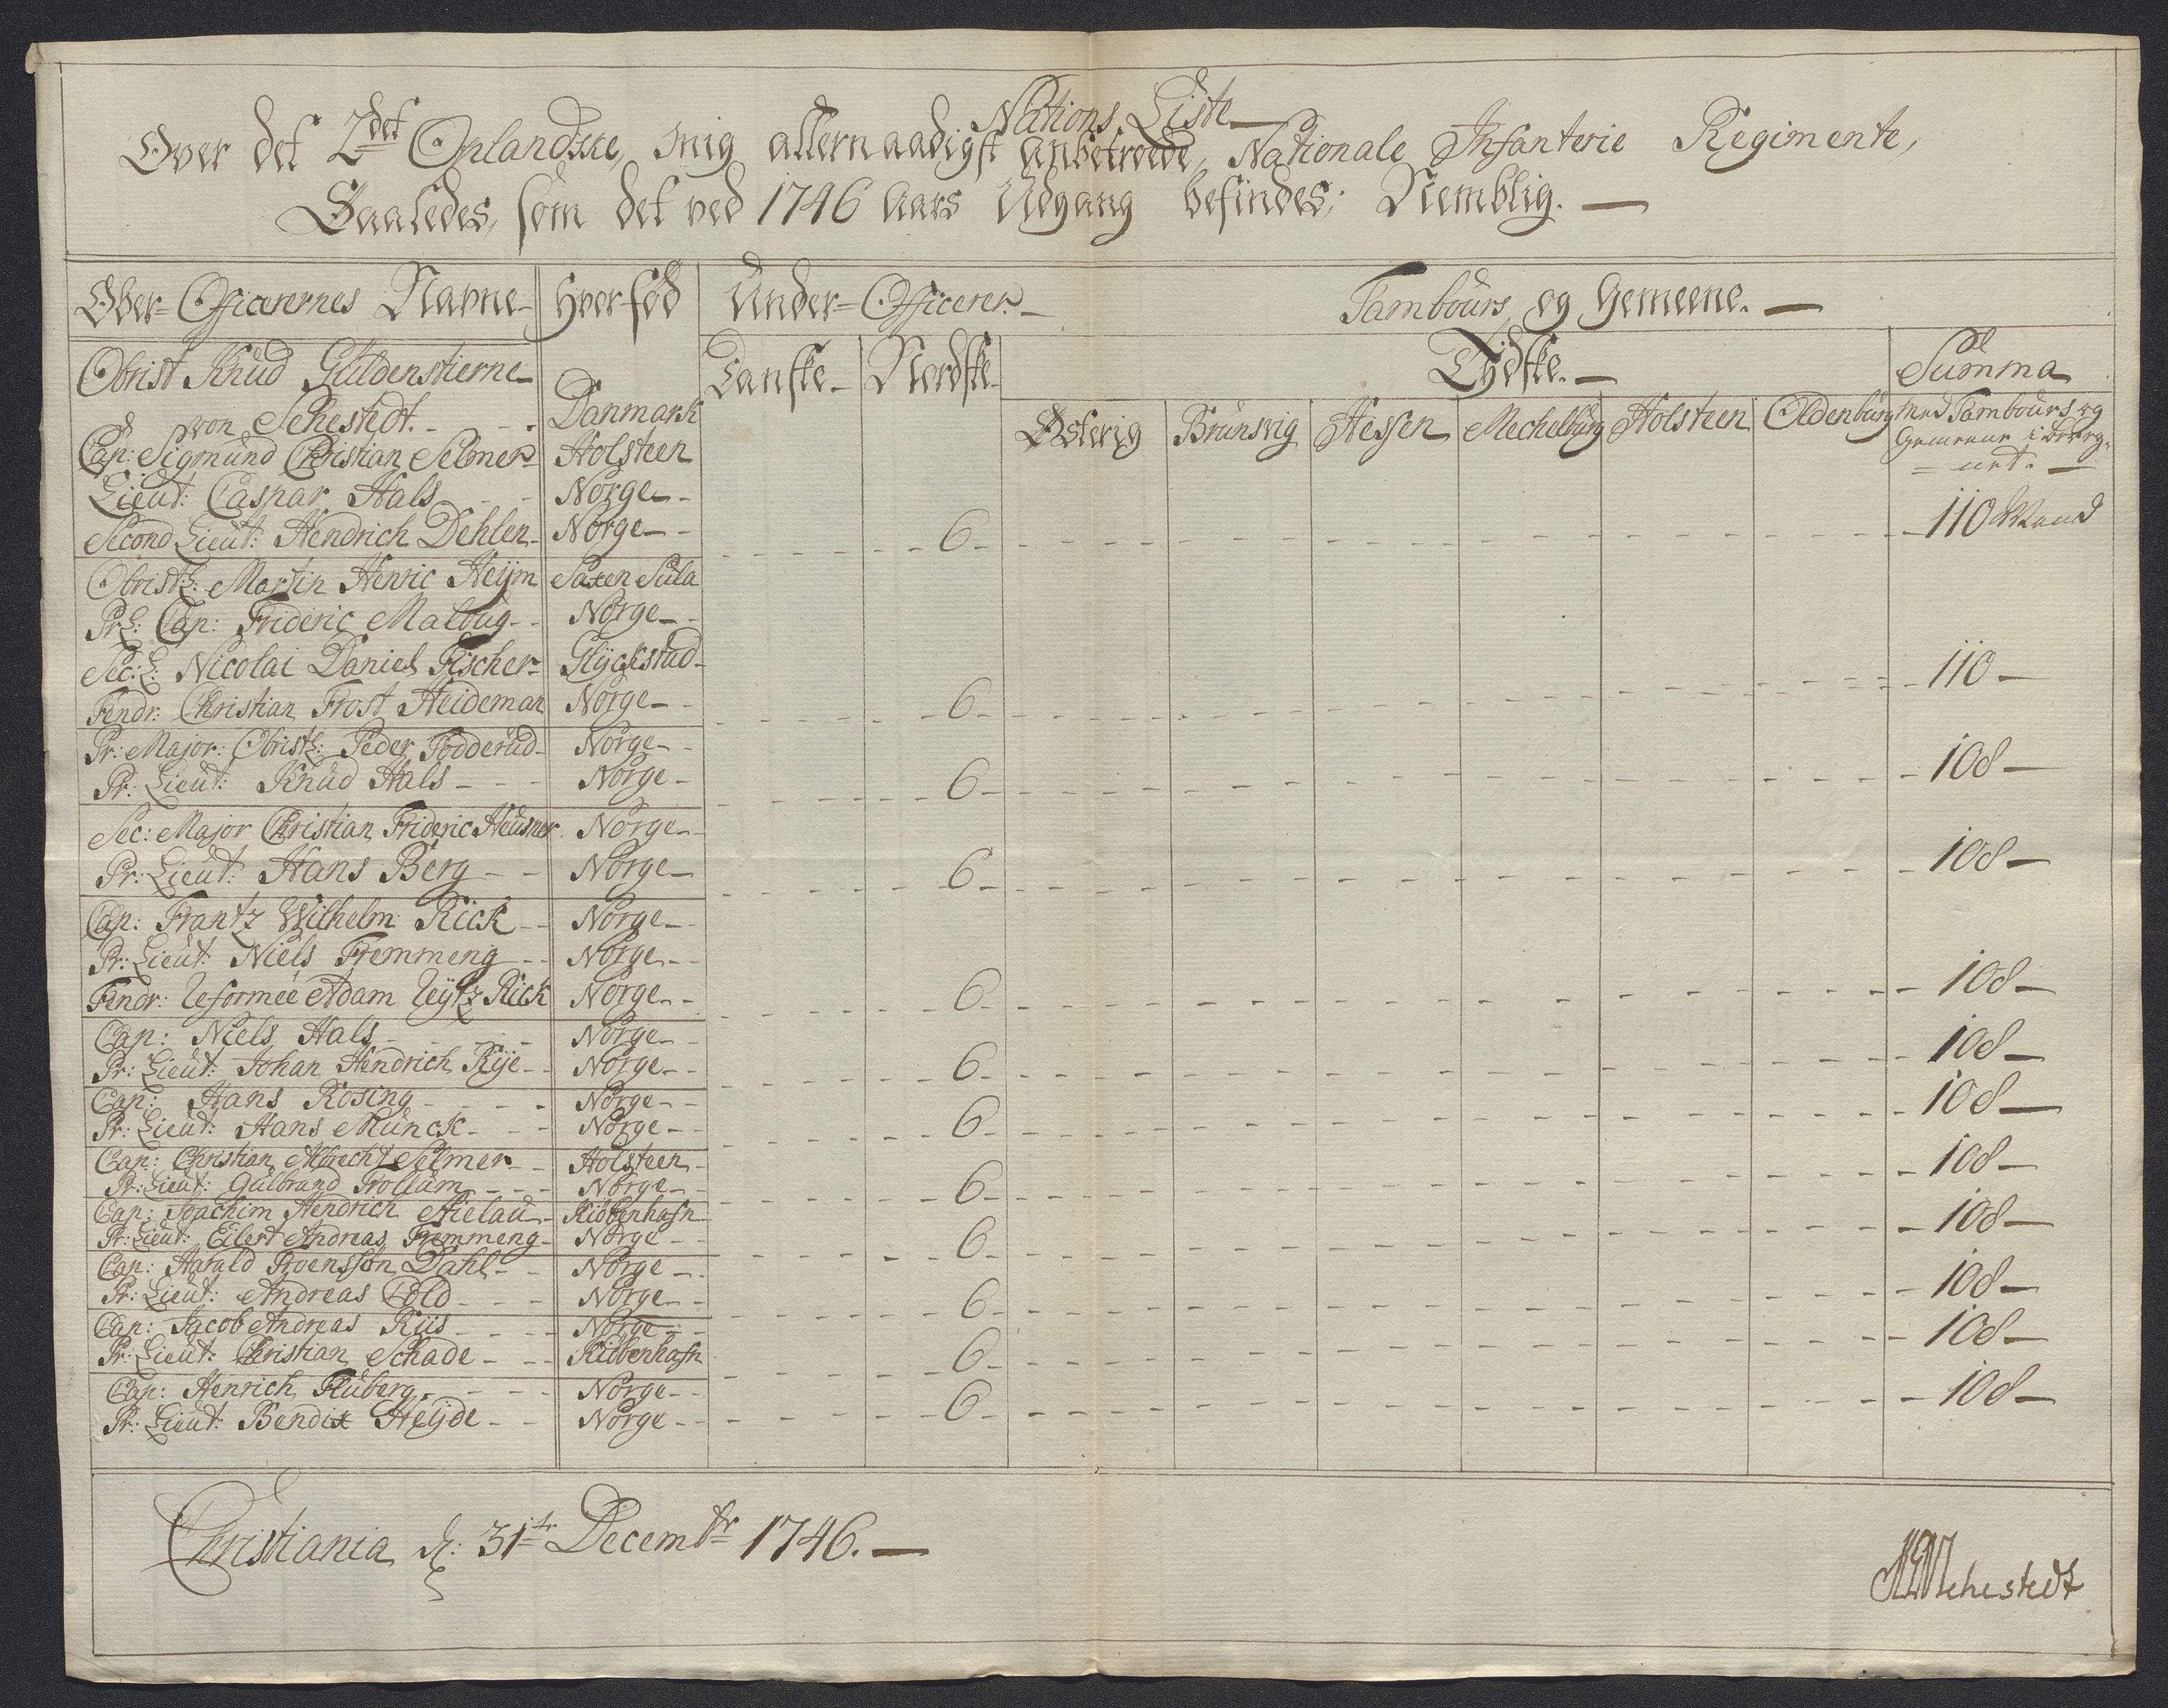 Nations Liste
Over det 2det Oplandske, mig allernaadigst anbetroede, Nationale Infanterie Regimente,
Saaledes, som det ved 1746 Aars Udgang befindes; Nemblig.
Ober-Officerernes Navne Hvor fød Under-Officerer Tambours og Gemeene.
Danske Nordske Tydske. Summa
Østerig Brunsvig Hessen Mechelburg Holsteen Oldenburg med Tambours og
Gemeene ibereg-
net.
Obrist Knud Güldenstierne
von Sehestedt. Danmark
Cap: Sigmund Christian Selmer Holsteen
Lieut: Caspar Hals Norge
Second Lieut: Hendrich Dehlen Norge 6 110 Mand
ObristL: Martin Henric Heijm Saxen Sula
PrL: Cap: Frideric Malbug Norge
Sec: L: Nicolai Daniel Fischer Glyckstad
Fendr: Christian Frost Heideman Norge 6 110
Pr: Major: ObristL: Peder Todderud Norge
Pr: Lieut: Knud Hals Norge 6 108
Sec: Major Christian Frideric Heusner Norge
Pr: Lieut: Hans Berg Norge 6 108
Cap: Frantz Wilhelm Rick Norge
Pr: Lieut: Niels Fremmeng Norge
Fendr: Reformeé Adam Reytz Rick Norge 6 108
Cap: Niels Hals Norge
Pr: Lieut: Johan Hendrich Rye Norge 6 108
Cap: Hans Rosing Norge
Pr: Lieut: Hans Munck Norge 6 108
Cap: Christian Albrecht Selmer Holsteen
Pr: Lieut: Gulbrand Prollum Norge 6 108
Cap: Joachim Hendrich Nielau Kiöbenhafn
Pr: Lieut: Eilert Andreas Fremmeng Norge 6 108
Cap: Harald Troensson Dahl Norge
Pr: Lieut: Andreas Cold Norge 6 108
Cap: Jacob Andreas Riis Norge
Pr: Lieut: Christian Schade Kiöbenhafn 6 108
Cap: Henrich Fluberg Norge
Pr: Lieut: Bendix Heyde Norge 6 108
Christiania d: 31te Decembr 1746.
Sehestedt